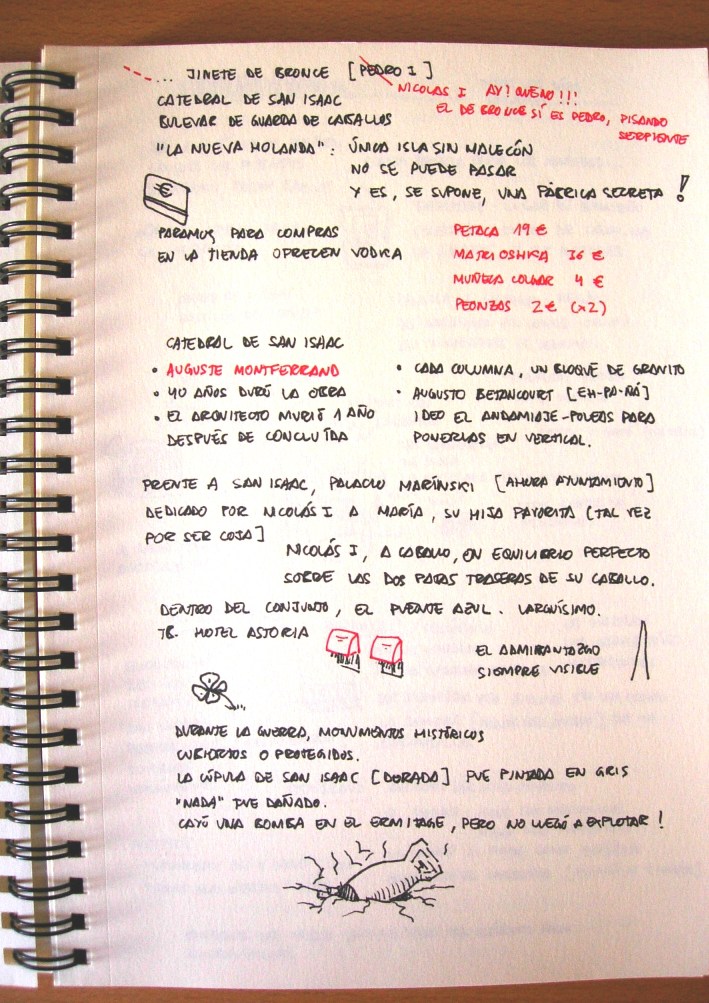 ... JINETE DE BRONCE [PEDRO I]
NICOLAS I AY! QUENO!!!
EL DE BRONCE SÍ ES PEDRO, PISANDO
SERPIENTE
CATEDRAL DE SAN ISAAC
BULEVAR DE GUARDA DE CABALLOS
"LA NUEVA HOLANDA": ÚNICA ISLA SIN MALECÓN
NO SE PUEDE PASAR
Y ES, SE SUPONE, UNA FÁBRICA SECRETA!
€
PARAMOS PARA COMPRAS
EN LA TIENDA OFRECEN VODKA
PETACA 19 €
MATRIOSHKA 36 €
MUÑECA COLGAR 4 €
PEONZAS 2 € (x2)
CATEDRAL DE SAN ISAAC
• AUGUSTE MONTFERRAND
• 40 AÑOS DURÓ LA OBRA
• EL ARQUITECTO MURIÓ 1 AÑO
DESPUÉS DE CONCLUÍDA
• CADA COLUMNA, UN BLOQUE DE GRANITO
• AUGUSTO BETANCOURT [EH-PA-ÑÁ]
IDEO EL ANDAMIAJE-POLEAS PARA
PONERLAS EN VERTICAL.
FRENTE A SAN ISAAC, PALACIO MARÍNSKI [AHORA AYUNTAMIENTO]
DEDICADO POR NICOLÁS I A MARÍA, SU HIJA FAVORITA [TAL VEZ
POR SER COJA]
NICOLÁS I, A CABALLO, EN EQUILIBRIO PERFECTO
SOBRE LAS DOS PATAS TRASERAS DE SU CABALLO.
DENTRO DEL CONJUNTO, EL PUENTE AZUL. LARGUÍSIMO.
TB. HOTEL ASTORIA
EL ADMIRANTAZGO
SIEMPRE VISIBLE
DURANTE LA GUERRA, MONUMENTOS HISTÓRICOS
CUBIERTOS O PROTEGIDOS.
LA CÚPULA DE SAN ISAAC [DORADA] FUE PINTADA EN GRIS
"NADA" FUE DAÑADO.
CAYÓ UNA BOMBA EN EL ERMITAGE, PERO NO LLEGÓ A EXPLOTAR!